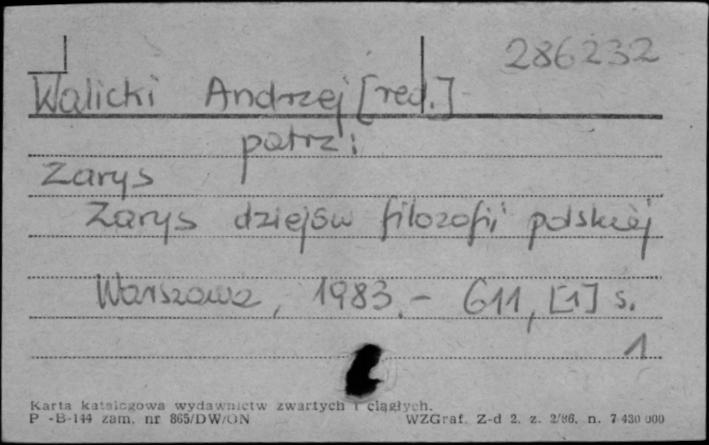 286232
Walicki Andrzej [red.]
patrz:
Zarys
Zarys dziejów filozofii polskiej
Warszawa, 1983.- 611, [1] s.
1
Karta katalogowa wydawnictw zwartych i ciągłych.
P -B-144 zam. nr 865/DW/ON WZGraf. Z-d 2. z. 2/86. n. 7 430 000